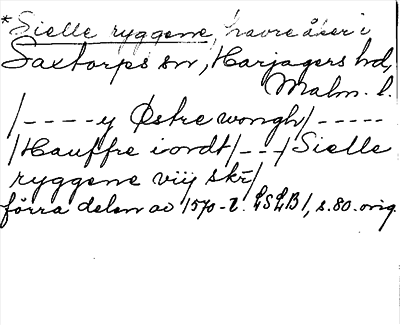 *Sielle ryggene, havre åker i
Saxtorps sn, Harjagers hd,
Malm. l.
/----y Østre wongh/-----
/Hauffre iordt/---/Sielle
ryggene viij skr/
förra delen av 1570-t. LSLB1, s. 80. orig.